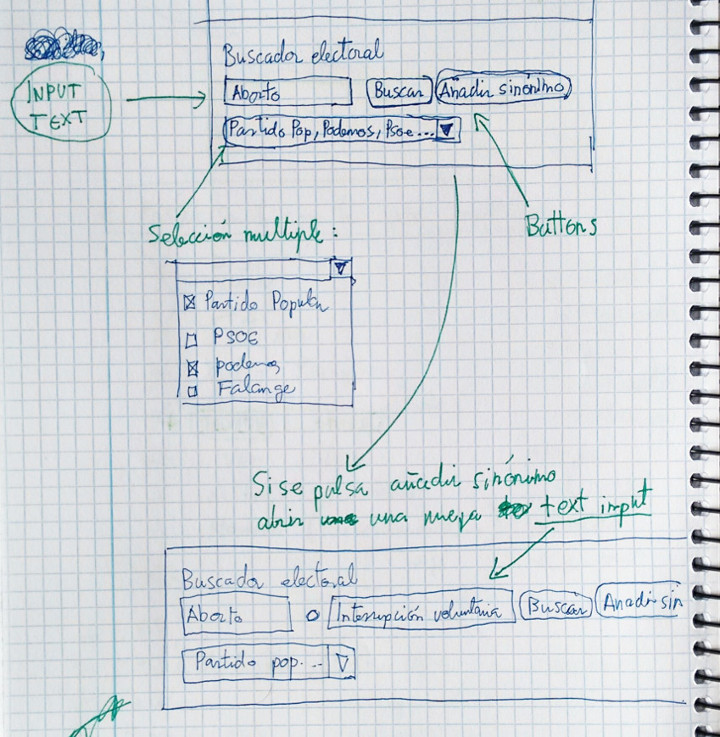 Buscador electoral
INPUT
TEXT
Aborto
Buscar
Añadir sinónimo
Partido Pop, Podemos, Psoe...
Selección multiple:
Buttons
Partido Popular
PSOE
podemos
Falange
Si se pulsa añadir sinónimo
abrir una nueva text imput
Buscador electoral
Aborto o Interrupción voluntaria Buscar Anadir sin
Partido pop...